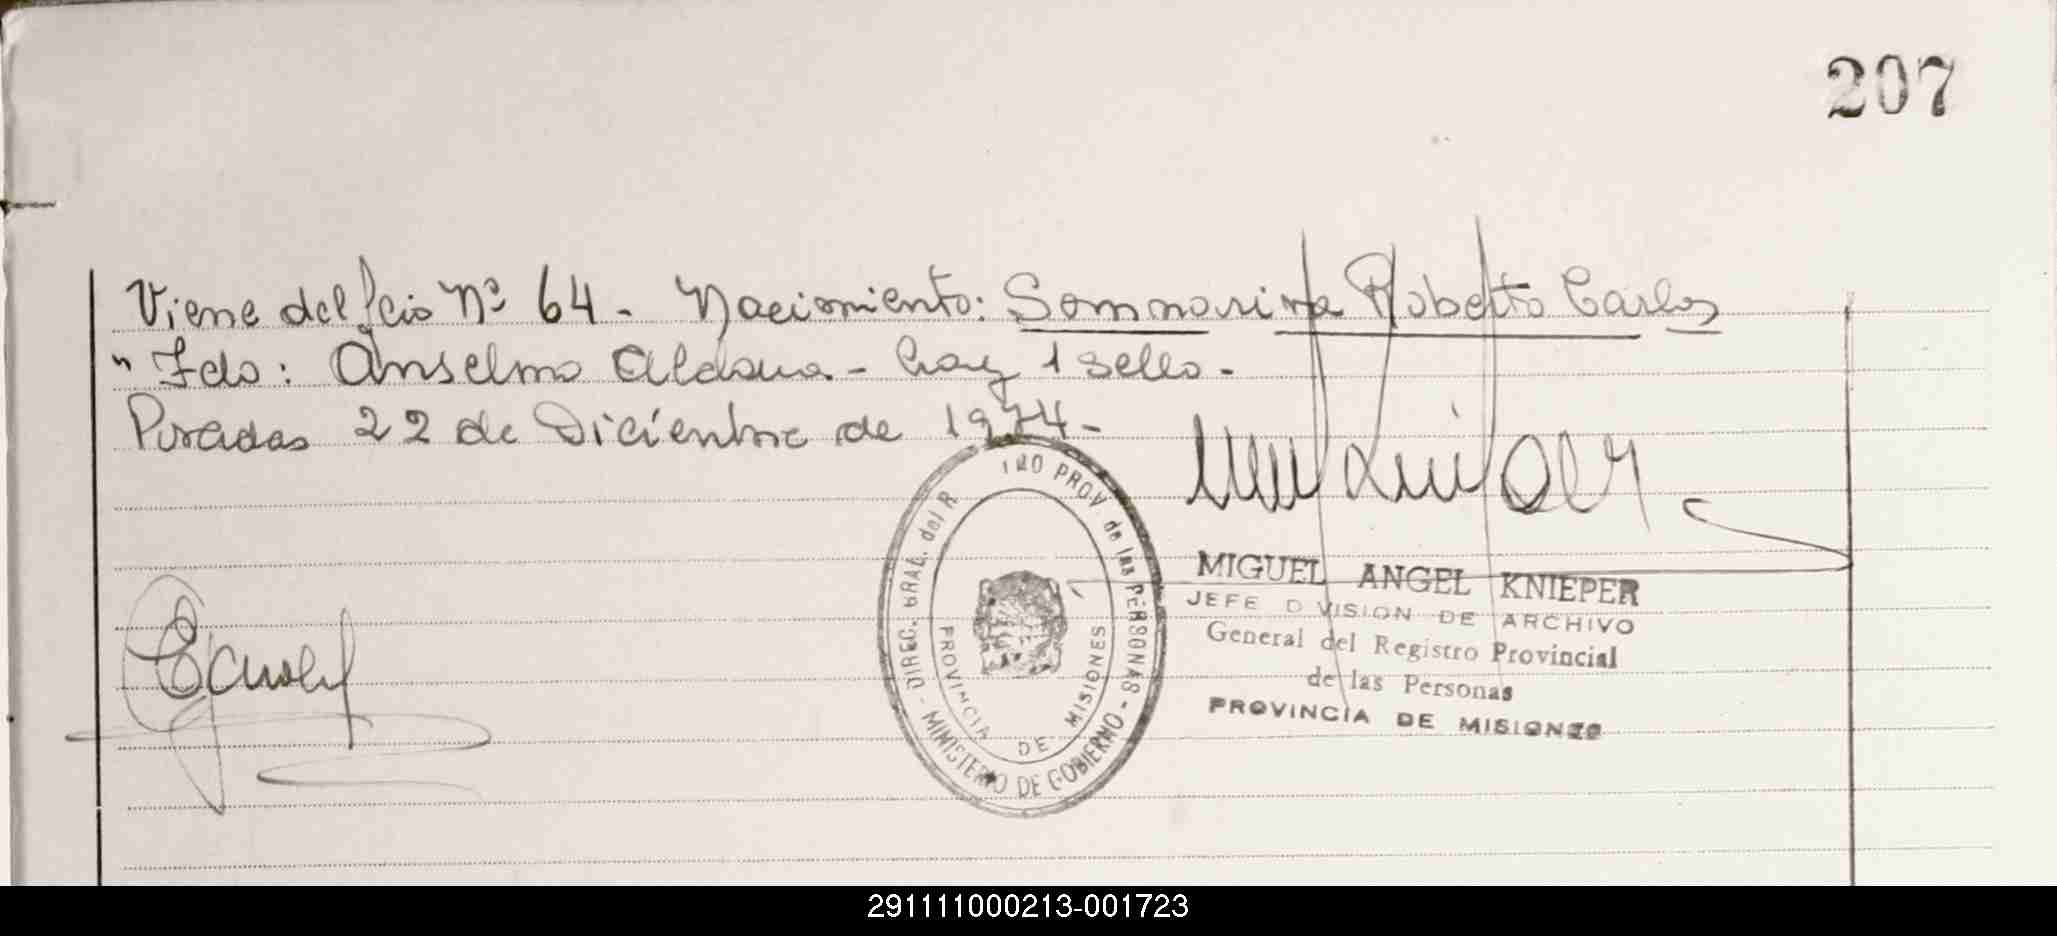 207
Viene del folio Nº 64 - Nacimiento: Sommariva Roberto Carlos
" Fdo: Anselmo Aldana - hay 1 sello -
Posadas 22 de Diciembre de 1974 -
DIREC. GRAL. del R PROV de las PERSONAS - MINISTERIO DE GOBIERNO -
PROVINCIA DE MISIONES
MIGUEL ANGEL KNIEPER
JEFE DIVISION DE ARCHIVO
General del Registro Provincial
de las Personas
PROVINCIA DE MISIONES
291111000213-001723